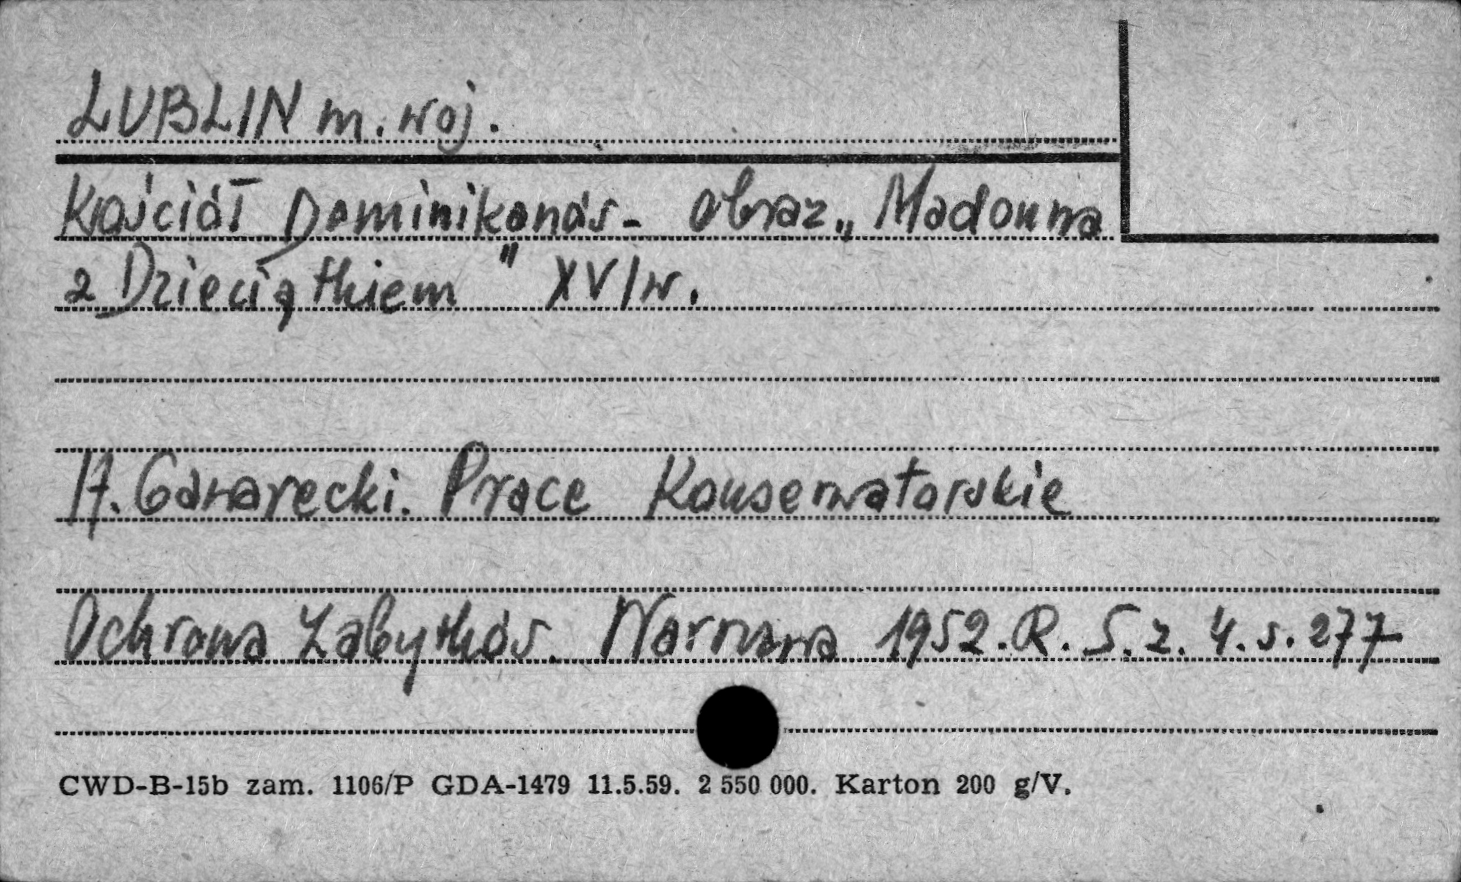 LUBLIN m. woj.
Kościół Dominikanów - obraz „Madonna
z Dzieciątkiem" XVI w.
H. Gawarecki. Prace Konserwatorskie
Ochrona Zabytków. Warszawa 1952. R. 5. z. 4. s. 277
CWD-B-15b zam. 1106/P GDA-1479 11.5.59. 2 550 000. Karton 200 g/V.